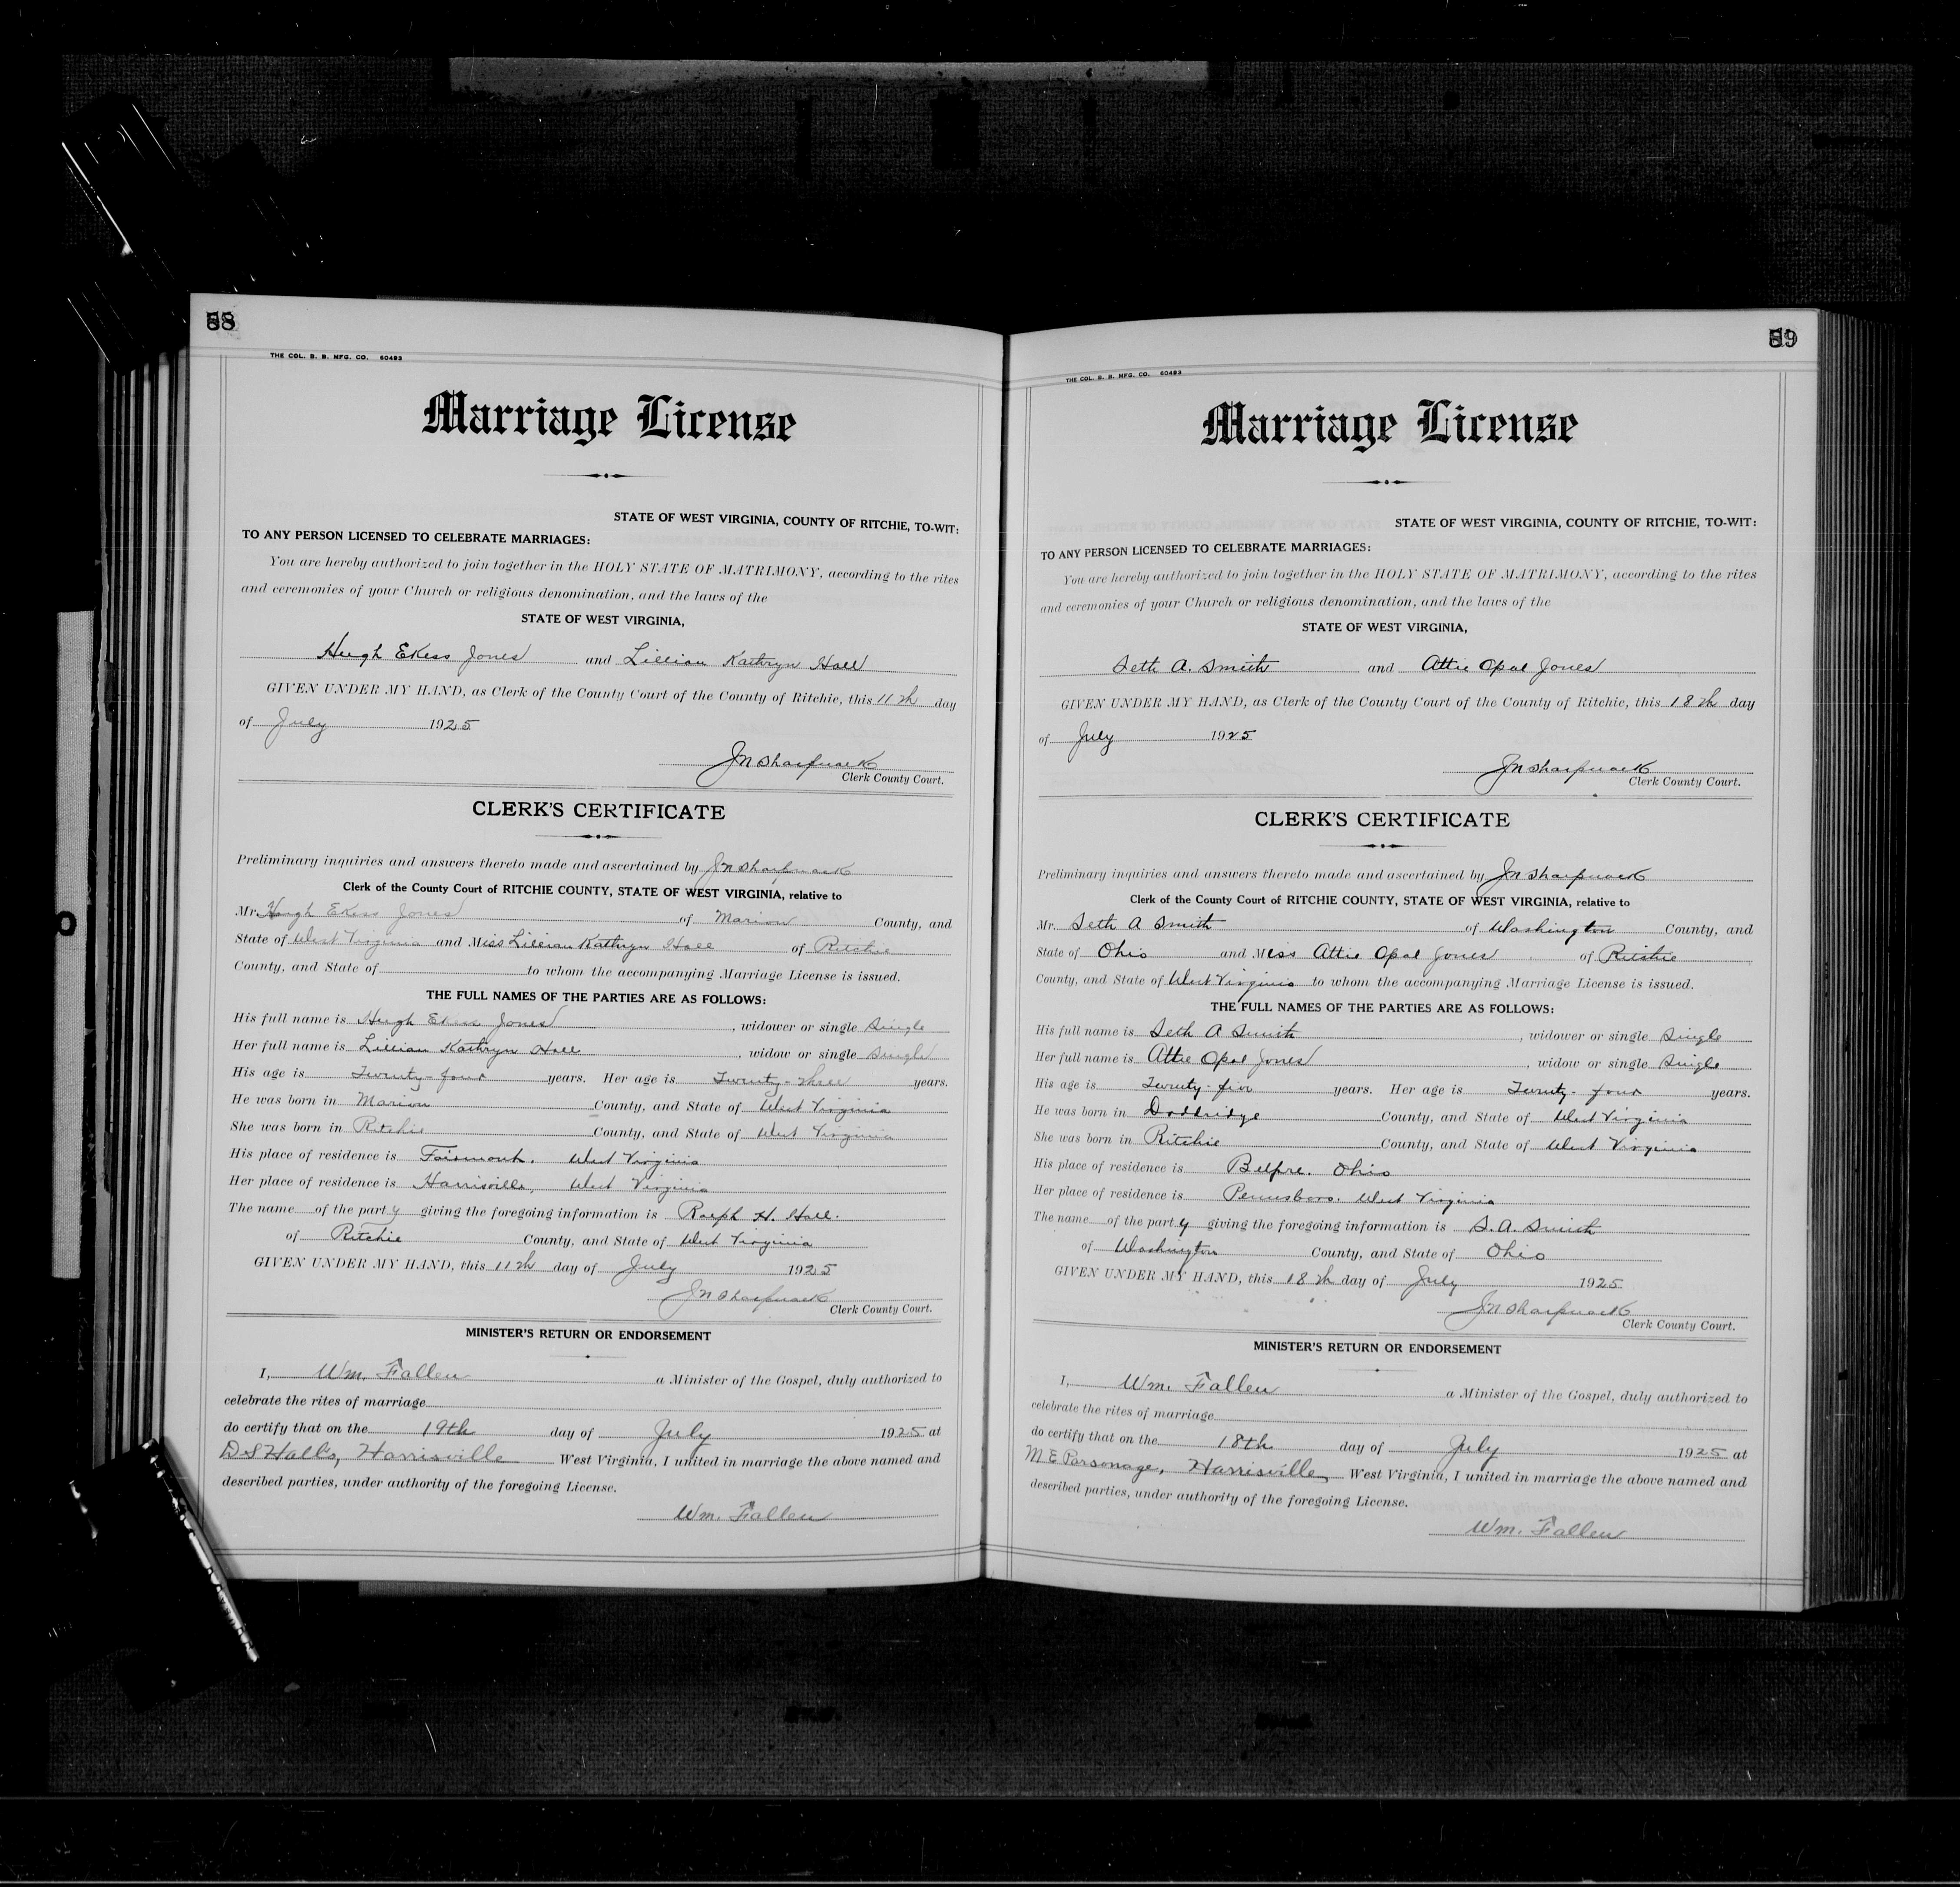 88
THE COL. B. B. MFG. CO. 60493
Marriage License
STATE OF WEST VIRGINIA, COUNTY OF RITCHIE, TO-WIT:
TO ANY PERSON LICENSED TO CELEBRATE MARRIAGES:
You are hereby authorized to join together in the HOLY STATE OF MATRIMONY, according to the rites
and ceremonies of your Church or religious denomination, and the laws of the
STATE OF WEST VIRGINIA,
Hugh Ekess Jones and Lillian Kathryn Hall
GIVEN UNDER MY HAND, as Clerk of the County Court of the County of Ritchie, this 11th day
of July 1925
JN Sharpnack
Clerk County Court.
CLERK'S CERTIFICATE
Preliminary inquiries and answers thereto made and ascertained by JN Sharpnack
Clerk of the County Court of RITCHIE COUNTY, STATE OF WEST VIRGINIA, relative to
Mr. Hugh Ekess Jones of Marion County, and
State of West Virginia and Miss Lillian Kathryn Hall of Ritchie
County, and State of to whom the accompanying Marriage License is issued.
THE FULL NAMES OF THE PARTIES ARE AS FOLLOWS:
His full name is Hugh Ekess Jones, widower or single Single
Her full name is Lillian Kathryn Hall, widow or single Single
His age is Twenty-four years. Her age is Twenty-three years.
He was born in Marion County, and State of West Virginia
She was born in Ritchie County, and State of West Virginia
His place of residence is Fairmont, West Virginia
Her place of residence is Harrisville, West Virginia
The name of the party giving the foregoing information is Ralph H. Hall.
of Ritchie County, and State of West Virginia
GIVEN UNDER MY HAND, this 11th day of July 1925
JN Sharpnack
Clerk County Court.
MINISTER'S RETURN OR ENDORSEMENT
I, Wm. Fallen a Minister of the Gospel, duly authorized to
celebrate the rites of marriage
do certify that on the 19th day of July 1925 at
D S Hall's, Harrisville West Virginia, I united in marriage the above named and
described parties, under authority of the foregoing License.
Wm. Fallen
89
THE COL. B. B. MFG. CO. 60493
Marriage License
STATE OF WEST VIRGINIA, COUNTY OF RITCHIE, TO-WIT:
TO ANY PERSON LICENSED TO CELEBRATE MARRIAGES:
You are hereby authorized to join together in the HOLY STATE OF MATRIMONY, according to the rites
and ceremonies of your Church or religious denomination, and the laws of the
STATE OF WEST VIRGINIA,
Seth A. Smith and Attie Opal Jones
GIVEN UNDER MY HAND, as Clerk of the County Court of the County of Ritchie, this 18th day
of July 1925
JN Sharpnack
Clerk County Court.
CLERK'S CERTIFICATE
Preliminary inquiries and answers thereto made and ascertained by JN Sharpnack
Clerk of the County Court of RITCHIE COUNTY, STATE OF WEST VIRGINIA, relative to
Mr. Seth A Smith of Washington County, and
State of Ohio and Miss Attie Opal Jones of Ritchie
County, and State of West Virginia to whom the accompanying Marriage License is issued.
THE FULL NAMES OF THE PARTIES ARE AS FOLLOWS:
His full name is Seth A Smith, widower or single Single
Her full name is Attie Opal Jones, widow or single Single
His age is Twenty-five years. Her age is Twenty-four years.
He was born in Doddridge County, and State of West Virginia
She was born in Ritchie County, and State of West Virginia
His place of residence is Belpre. Ohio
Her place of residence is Pennsboro. West Virginia
The name of the party giving the foregoing information is S. A. Smith
of Washington County, and State of Ohio
GIVEN UNDER MY HAND, this 18th day of July 1925
JN Sharpnack
Clerk County Court.
MINISTER'S RETURN OR ENDORSEMENT
I, Wm. Fallen a Minister of the Gospel, duly authorized to
celebrate the rites of marriage
do certify that on the 18th day of July 1925 at
M E Parsonage, Harrisville, West Virginia, I united in marriage the above named and
described parties, under authority of the foregoing License.
Wm. Fallen